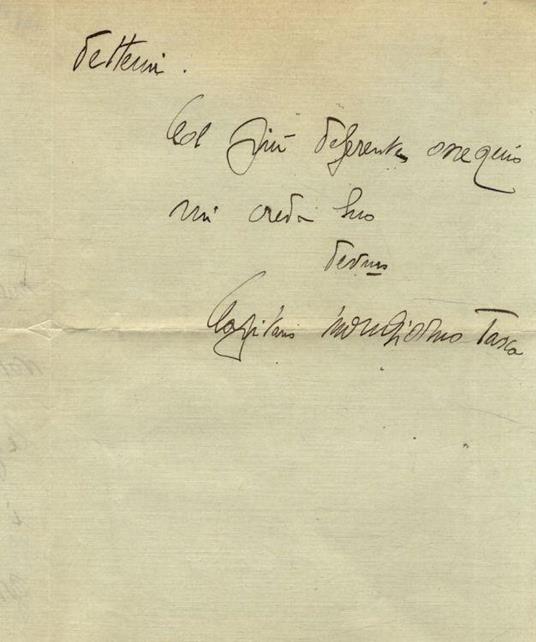 dettemi.
Col più deferente ossequio
mi creda Suo
devmo
Capitano Tasca